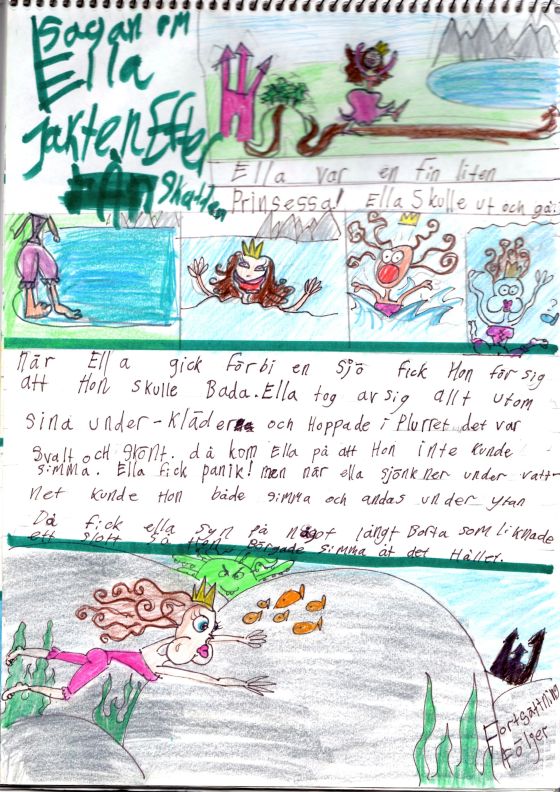 Sagan om
Ella
jakten Efter
skatten
Ella var en fin liten
Prinsessa! Ella Skulle ut och gå.
När Ella gick förbi en sjö fick Hon för sig
att Hon skulle Bada. Ella tog av sig allt utom
sina under-kläder och Hoppade i Plurret det var
svalt och skönt. då kom Ella på att Hon inte kunde
simma. Ella fick panik! men när ella sjönk ner under vatt-
net kunde Hon både simma och andas under ytan
Då fick ella syn på något långt Borta som liknade
ett slott så Hon Börgade simma åt det Hållet.
Fortsättning
Följer